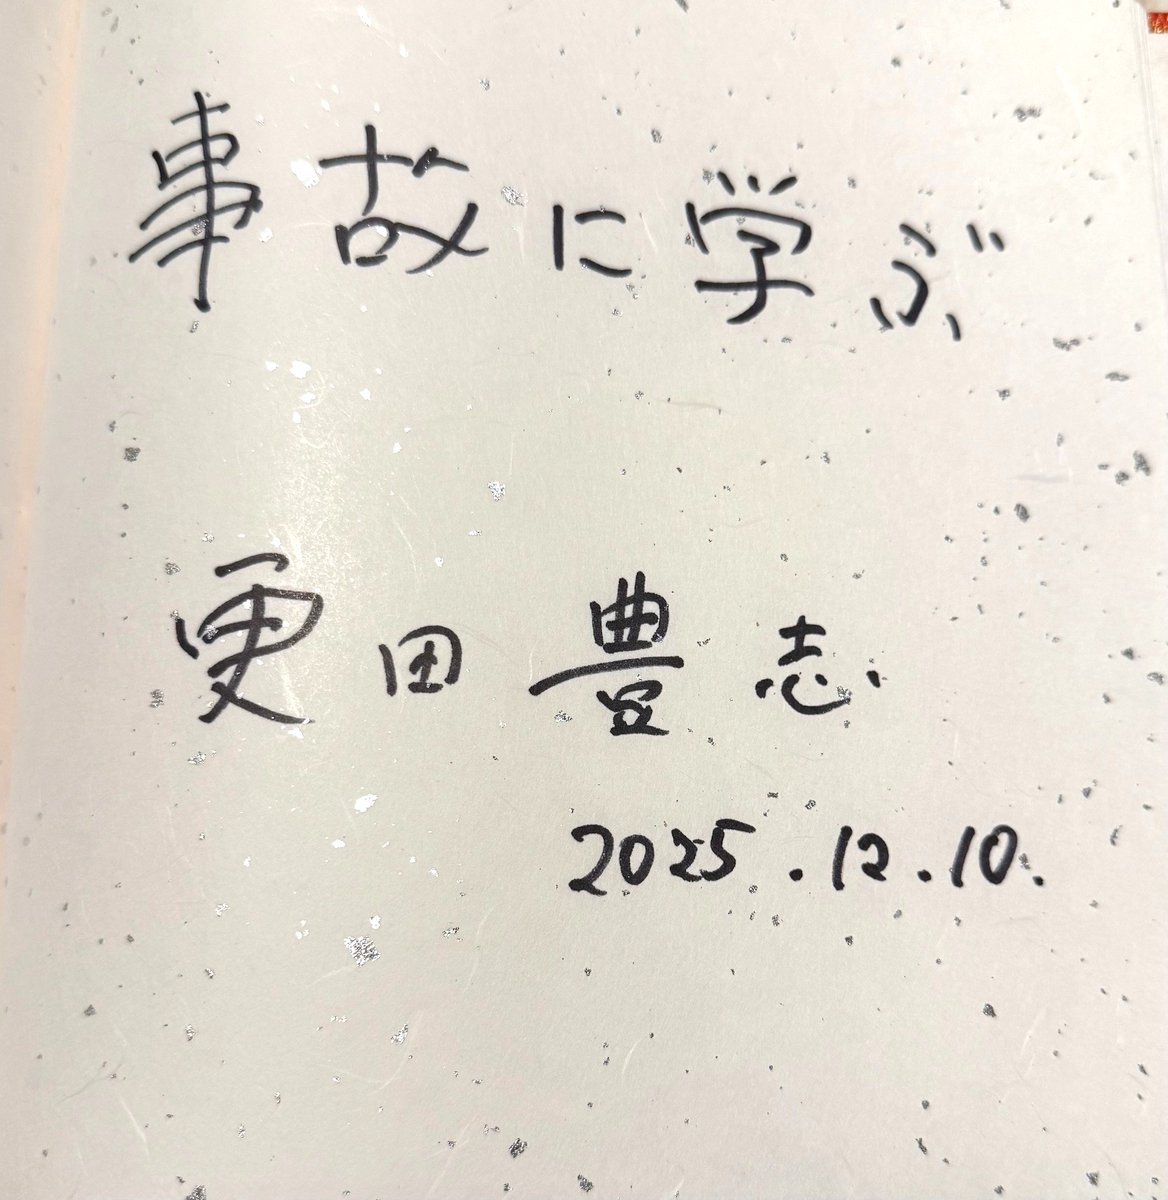 事故に学ぶ
更田豊志
2025.12.10.